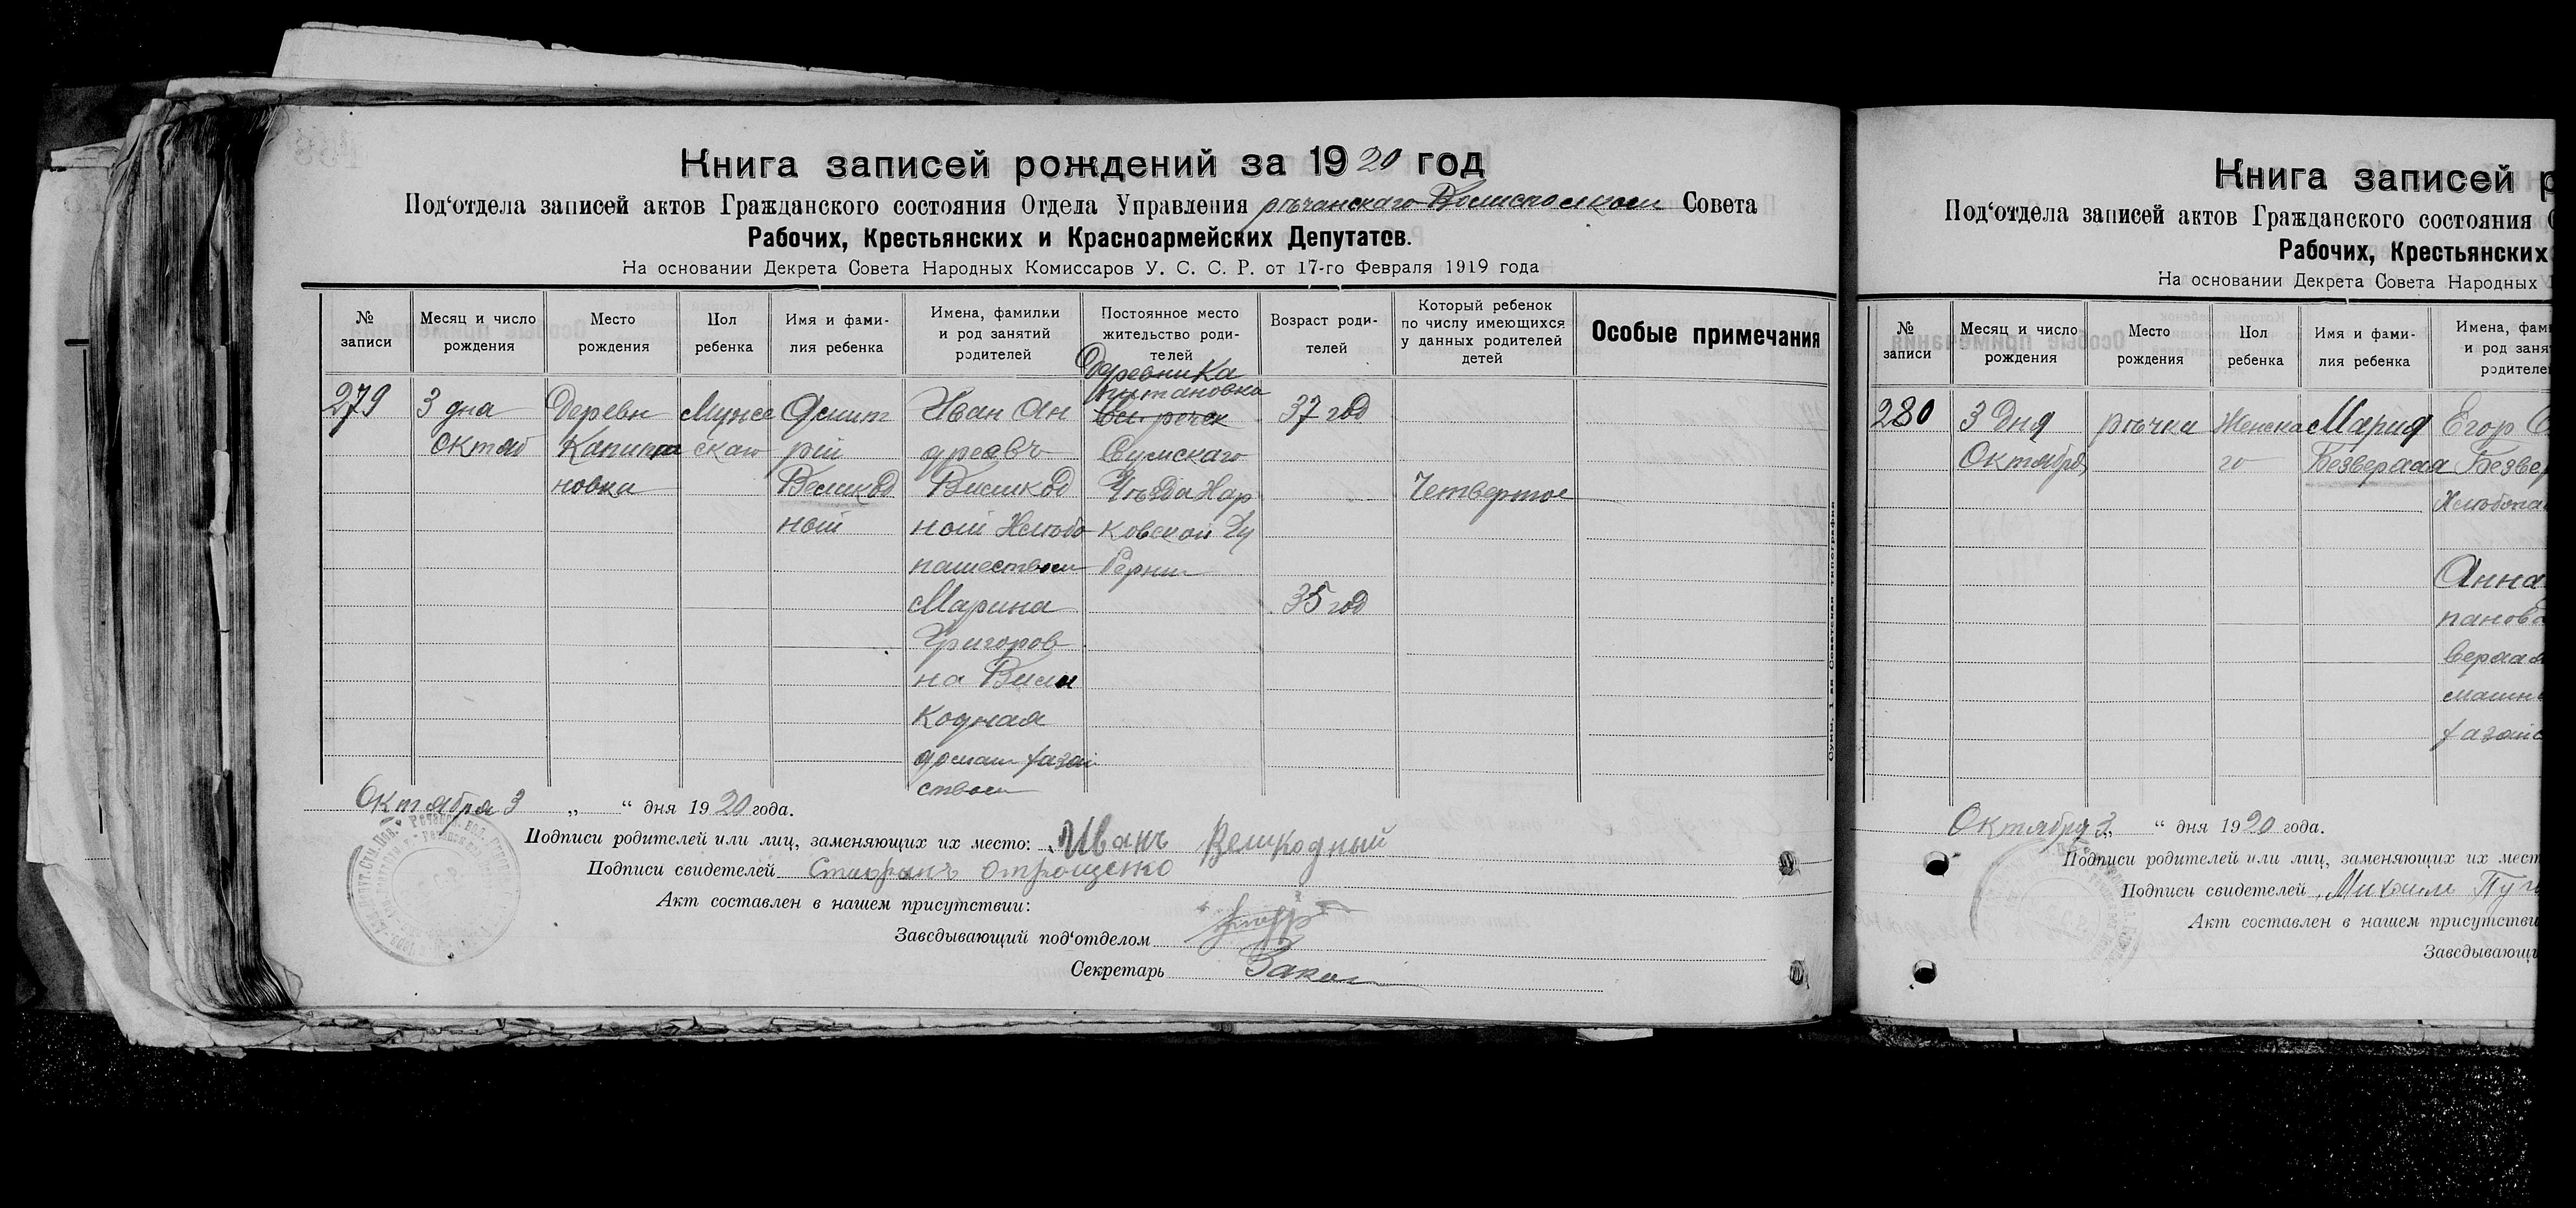 Книга записей рождений за 1920 год
Под‘отдела записей актов Гражданского состояния Отдела Управления рѣчанскаго Волисполкома Совета
Рабочих, Крестьянских и Красноармейских Депутатов.
На основании Декрета Совета Народных Комиссаров У. С. С. Р. от 17-го Февраля 1919 года
№ записи
Месяц и число рождения
Место рождения
Пол ребенка
Имя и фами-
лия ребенка
Имена, фамилии
и род занятий
родителей
Постоянное место
жительство роди-
телей
Возраст роди-
телей
Который ребенок
по числу имеющихся
у данных родителей
детей
Особые примечания
279
3 дна
октяб
Деревн
Капита
новка
Мужс
скаго
Дмит
рій
Великод
ной
Иван Ан
дреавъ
Великод
ной Хлѣбо
пашеством
Марина
Григоров
на Вели
кодная
домаш хазай
ством
Деревни Ка
питановка
Сумскаго
Уѣзда Хар
ковской Гу
берни
37 год
35 год
Четвертое
Октября 3 „ “ дня 1920 года.
Подписи родителей или лиц, заменяющих их место: Иванъ Великодный
Подписи свидетелей Стефанъ Отрощенко
Акт составлен в нашем присутствии:
Заведывающий под‘отделом
Секретарь
Сумы, 1-ая Советская типография
Книга записей р
Под‘отдела записей актов Гражданского состояния О
Рабочих, Крестьянских
На основании Декрета Совета Народных
№ записи
Месяц и число рождения
Место рождения
Пол ребенка
Имя и фами-
лия ребенка
Имена, фам
и род заня
родителе
280
3 Дня
Октября
рѣчки
Женска
го
Мария
Безверхая
Егор
Безвер
Хлѣбопа
Анна
панов
верхая
машн
хазяйс
Октября 3 „ “ дня 1920 года.
Подписи родителей или лиц, заменяющих их мест
Подписи свидетелей Михаил
Акт составлен в нашем присутстви
Заведывающи